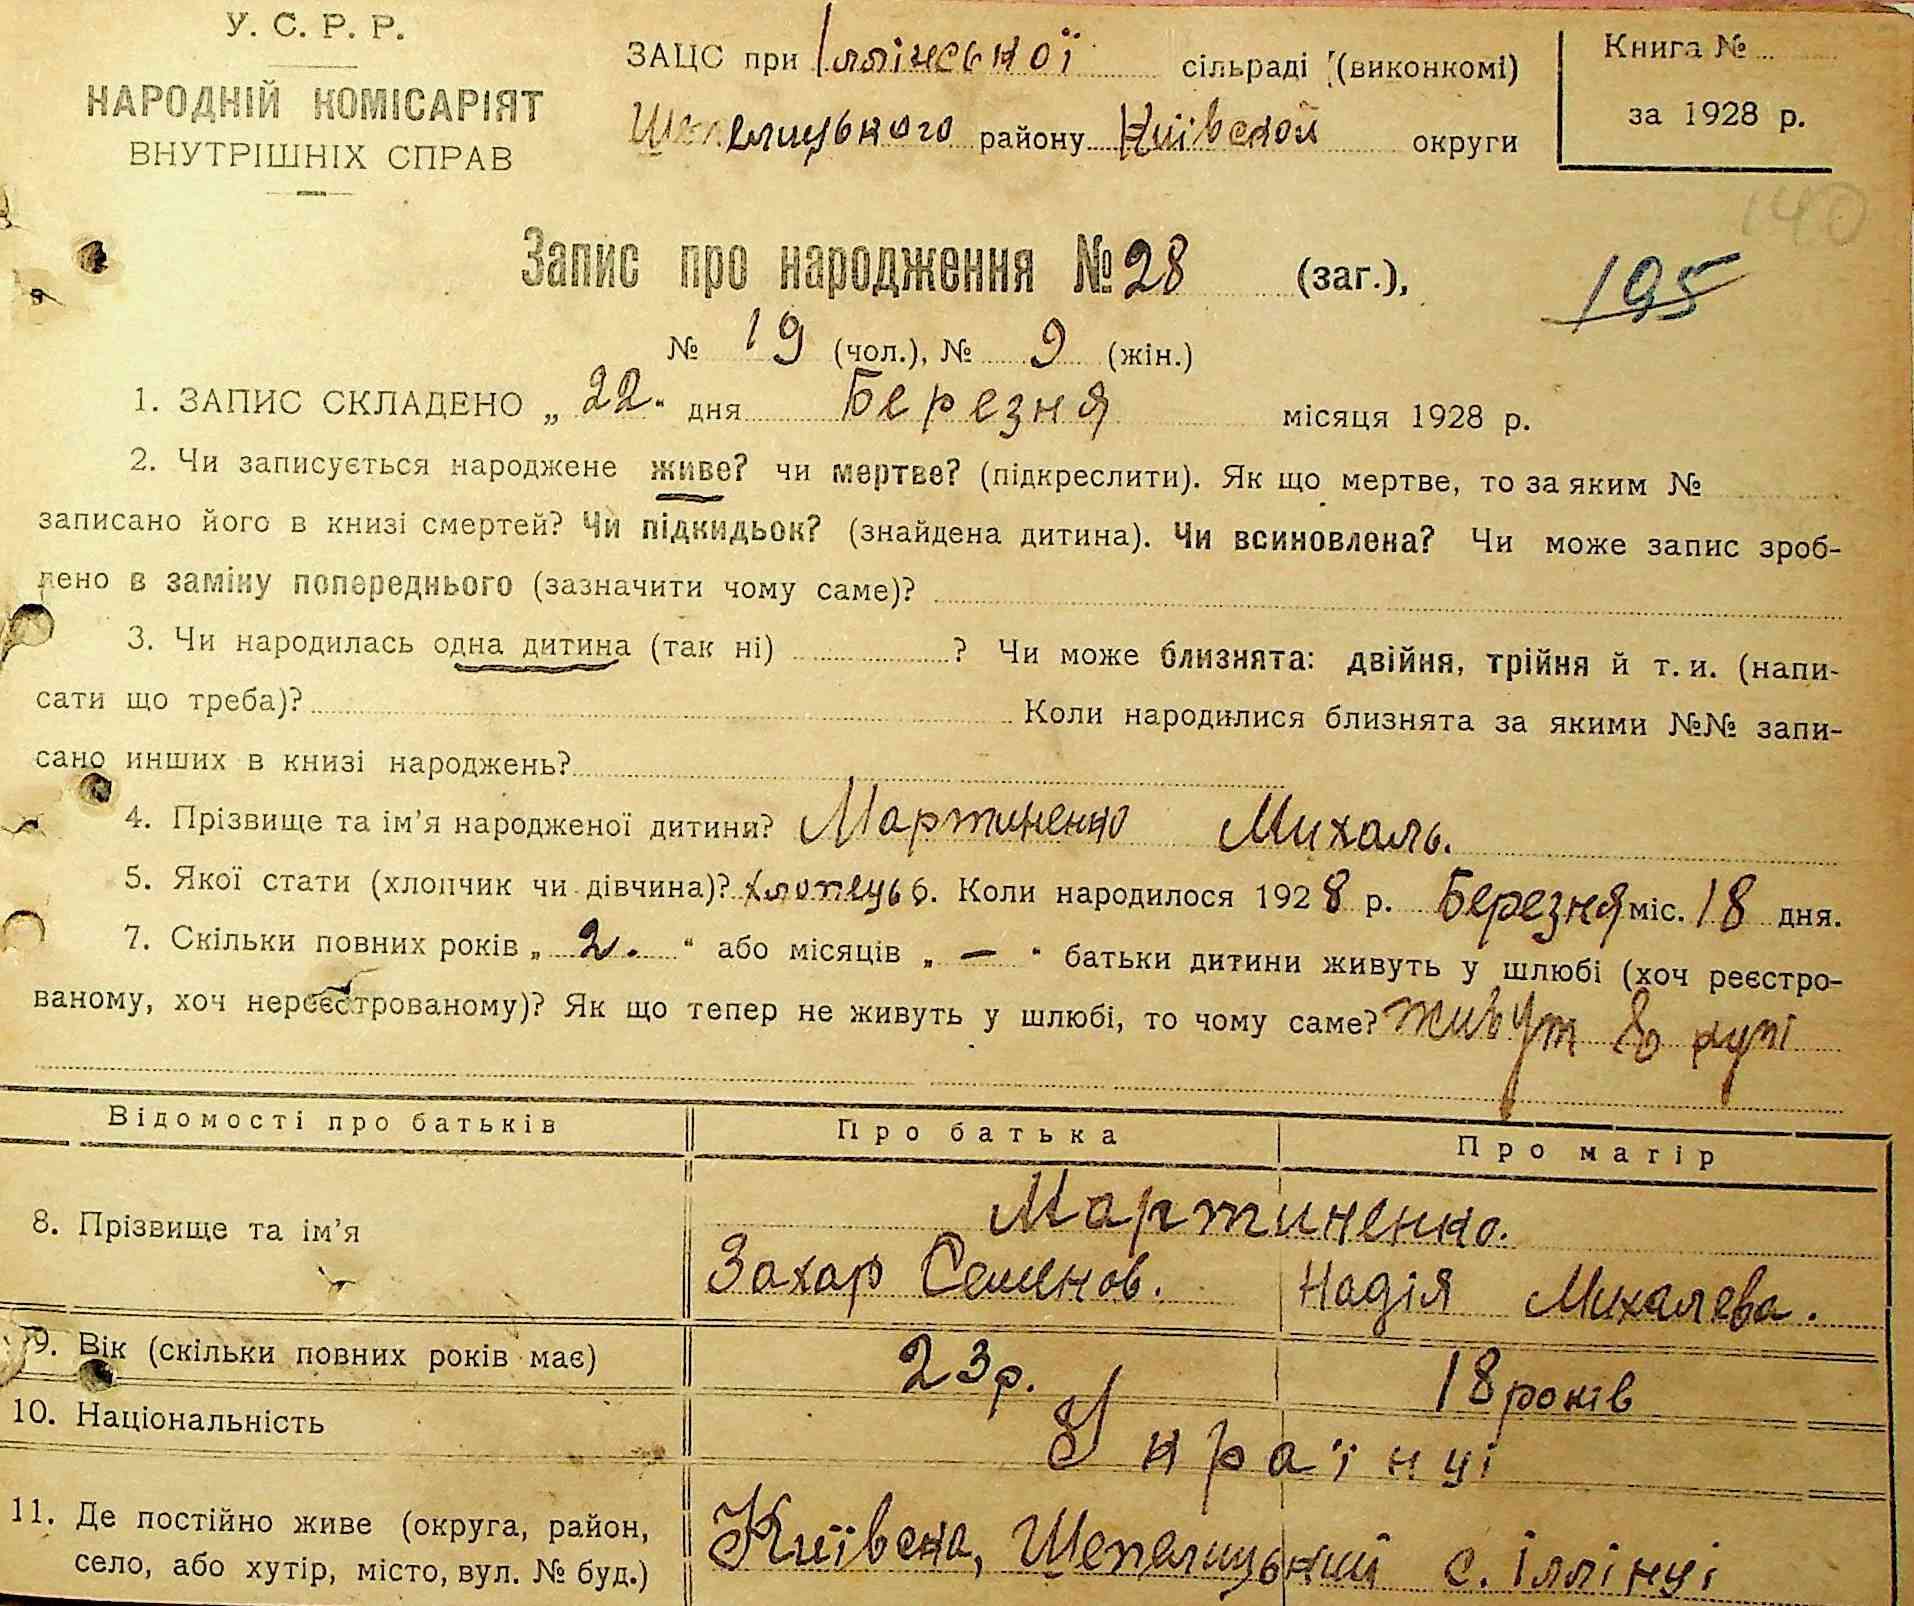 У. С. Р. Р.
НАРОДНІЙ КОМІСАРІЯТ
ВНУТРІШНІХ СПРАВ
ЗАЦС при Іллінської сільраді (виконкомі)
Шепелицького району Київской округи
Книга №
за 1928 р.
140
Запис про народження № 28 (заг.),
195
№ 19 (чол.), № 9 (жін.)
1. ЗАПИС СКЛАДЕНО „ 22 “ дня Березня місяця 1928 р.
2. Чи записується народжене живе? чи мертве? (підкреслити). Як що мертве, то за яким №
записано його в книзі смертей? Чи підкидьок? (знайдена дитина). Чи всиновлена? Чи може запис зроб-
лено в заміну попереднього (зазначити чому саме)?
3. Чи народилась одна дитина (так ні) ? Чи може близнята: двійня, трійня й т. и. (напи-
сати що треба)? Коли народилися близнята за якими №№ запи-
сано инших в книзі народжень?
4. Прізвище та ім’я народженої дитини? Мартиненко Михаль.
5. Якої стати (хлопчик чи дівчина)? хлопець 6. Коли народилося 1928 р. Березня міс. 18 дня.
7. Скільки повних років „ 2. “ або місяців „ — “ батьки дитини живуть у шлюбі (хоч реєстро-
ваному, хоч нереєстрованому)? Як що тепер не живуть у шлюбі, то чому саме? живут в купі
Відомості про батьків Про батька Про матір
8. Прізвище та ім’я Мартиненко.
Захар Семенов. Надія Михалева.
9. Вік (скільки повних років має) 23 р. 18 років
10. Національність Українці
11. Де постійно живе (округа, район,
село, або хутір, місто, вул. № буд.) Київска, Шепелицький с. Іллінці